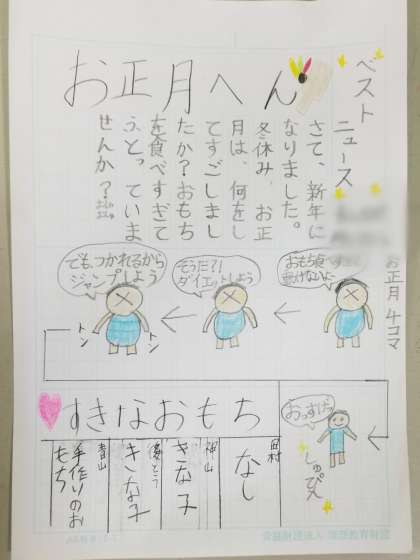 ベスト
ニュース
お正月へん
さて、新年に
なりました。
冬休み、お正
月は、何をし
てすごしまし
たか？おもち
を食べすぎて
ふとっていま
せんか？
お正月4コマ
おもち食べすぎて
動けない〜
そうだ?!
ダイエットしよう
でも、つかれるから
ジャンプしよう
トン
トン
おっすげー
しゅぴん
すきなおもち
田村
なし
神山
きな子
後とう
きな子
青山
手作りのお
もち